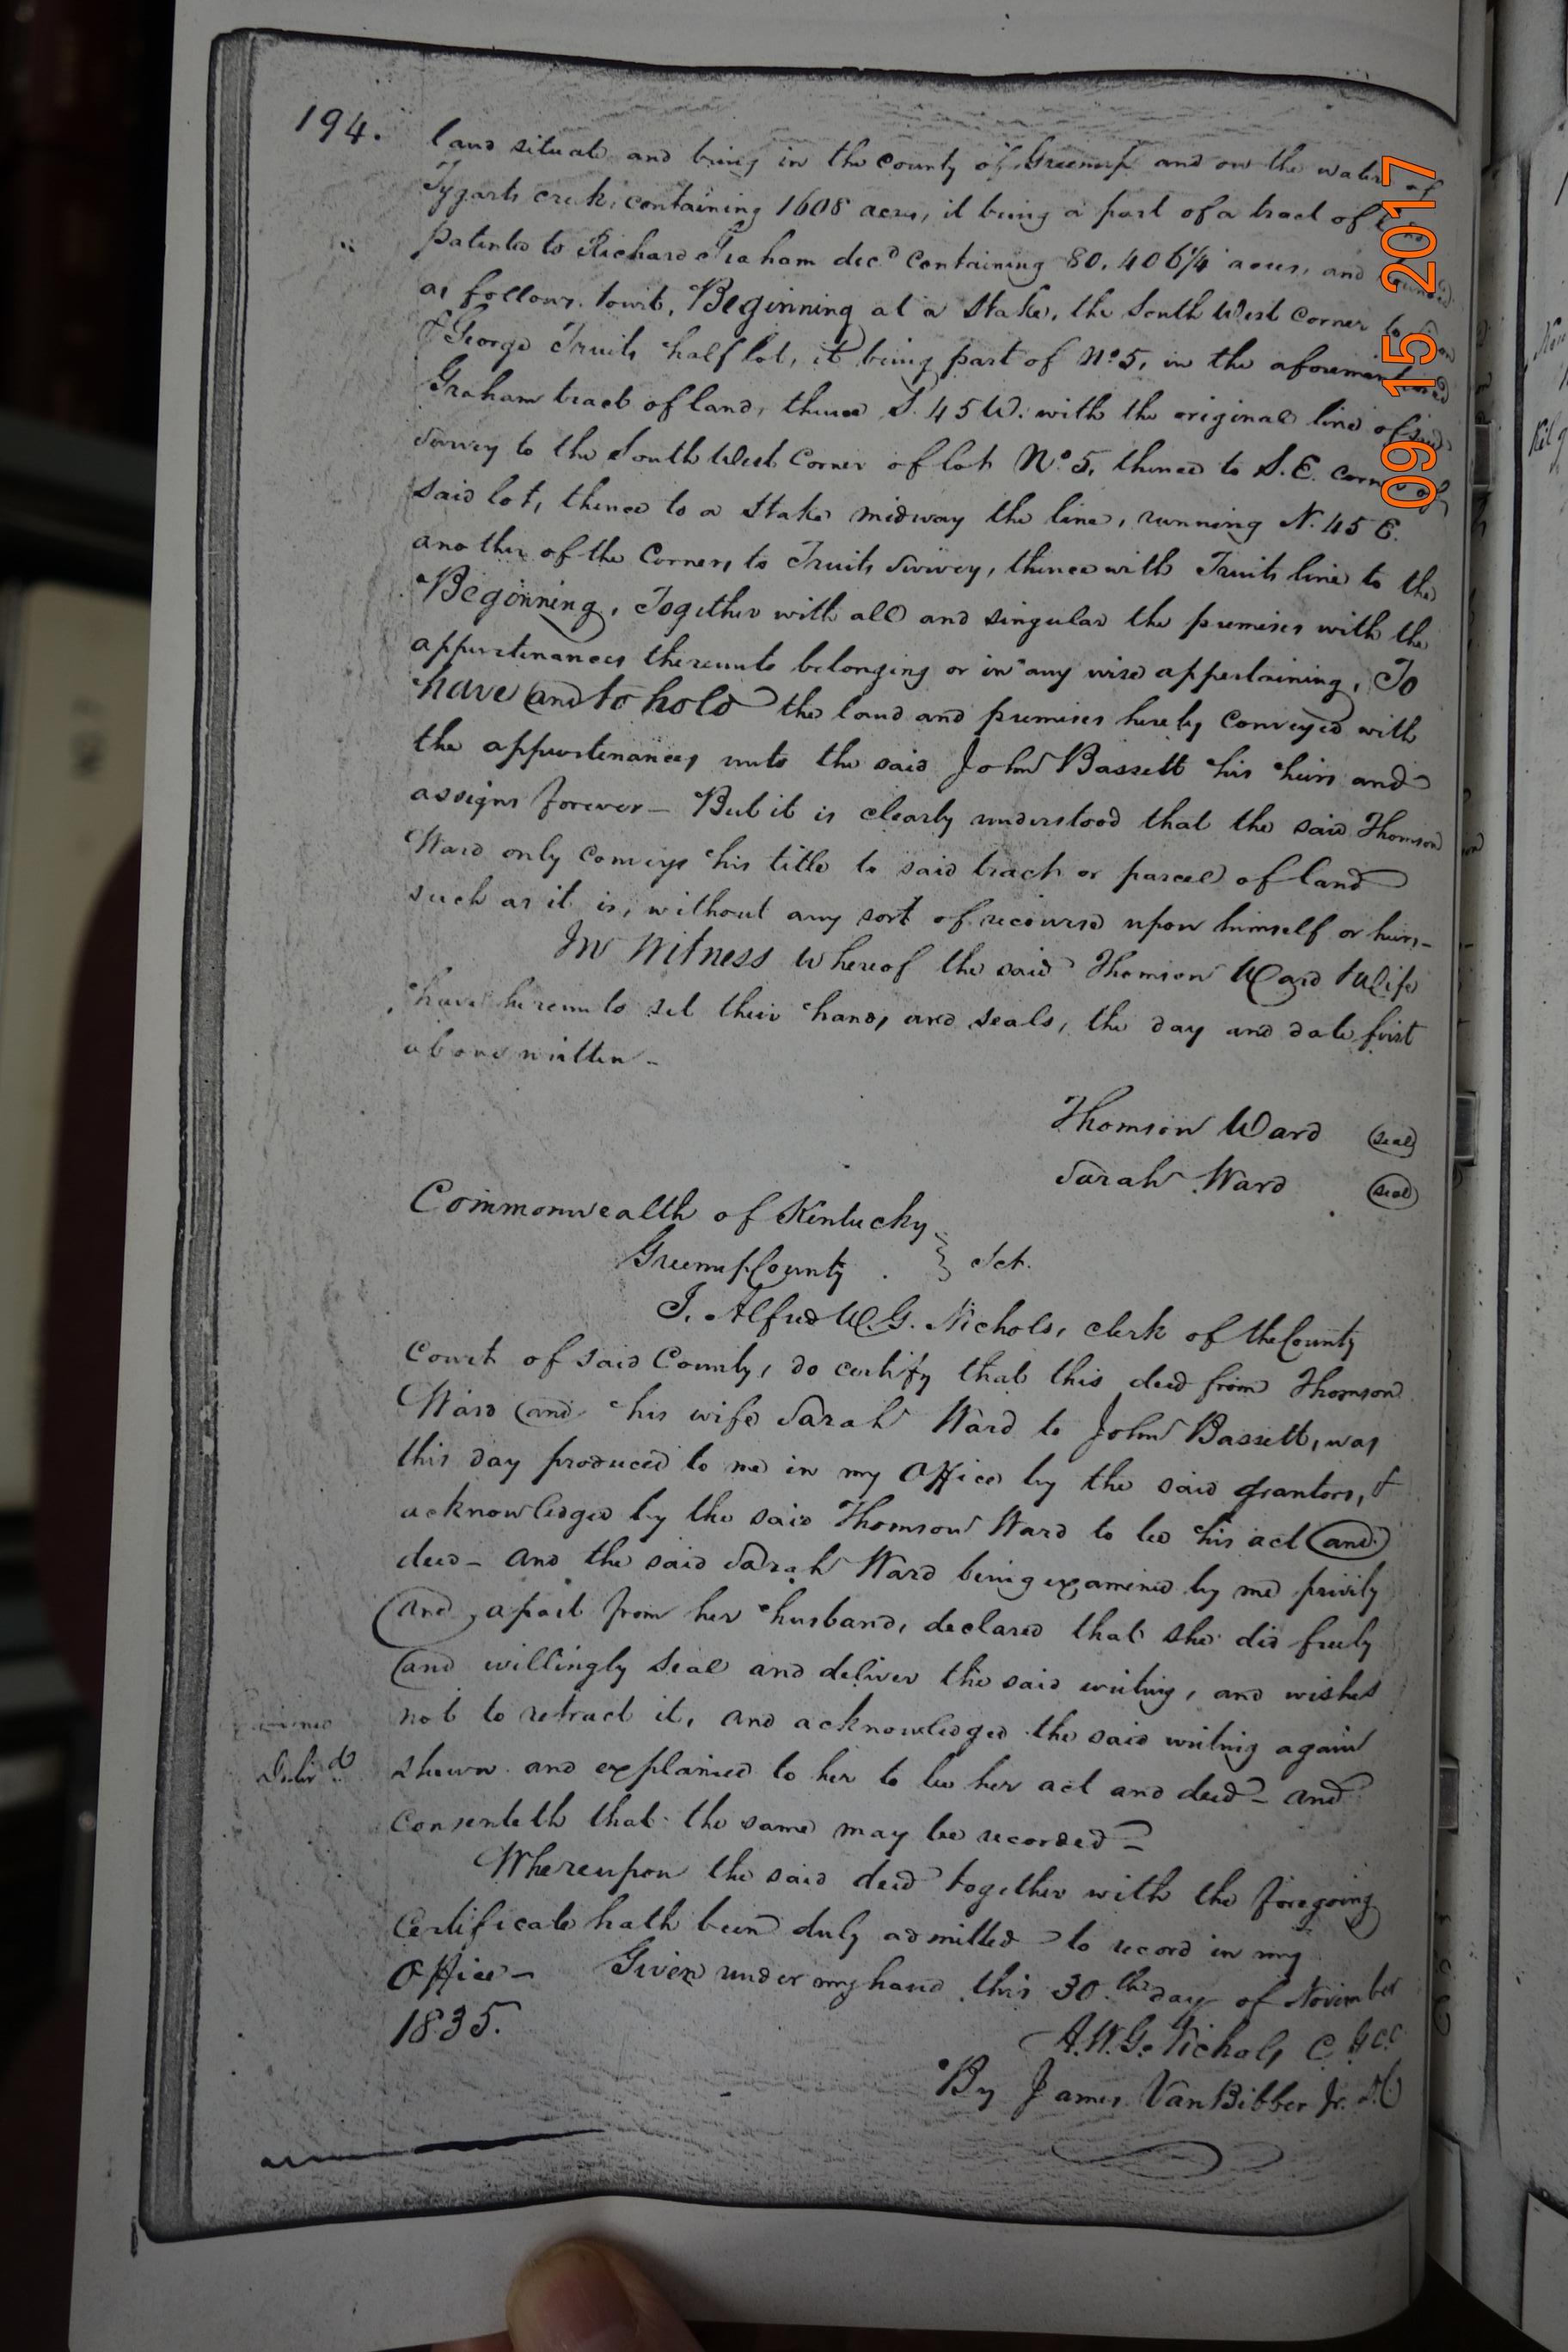 194.
land situate and being in the county of Greenup and on the waters of
Tygarts creek, containing 1608 acres, it being a part of a tract of land
patented to Richard Graham decd containing 80,406 1/4 acres, and bounded
as follows. towit, Beginning at a stake, the South West Corner to
& George Truits half lot, it being part of No 5, in the aforementioned
Graham tract of land, thence S. 45 W. with the original line of said
Survey to the South West Corner of lot No 5, thence to S. E. corner of
said lot, thence to a stake midway the line, running N. 45 E.
another of the Corners to Truits Survey, thence with Truits line to the
Beginning, Together with all and singular the premises with the
appurtenances thereunto belonging or in any wise appertaining, To
have and to hold the land and premises hereby conveyed with
the appurtenances unto the said John Bassett his heirs and
assigns forever – But it is clearly understood that the said Thomson
Ward only conveys his title to said tract or parcel of land
such as it is, without any sort of recourse upon himself or heirs –
In Witness Whereof the said Thomson Ward & Wife
have hereunto set their hands and seals, the day and date first
above written –
Thomson Ward (seal)
Sarah Ward (seal)
Commonwealth of Kentucky
Greenup County } Sct.
I. Alfred W. G. Nichols, clerk of the County
Court of said County, do certify that this deed from Thomson
Ward and his wife Sarah Ward to John Bassett, was
this day produced to me in my Office by the said grantors, &
acknowledged by the said Thomson Ward to be his act and
deed – and the said Sarah Ward being examined by me privily
and apart from her husband, declared that she did freely
and willingly seal and deliver the said writing, and wishes
not to retract it, and acknowledged the said writing again
shown and explained to her to be her act and deed – and
consenteth that the same may be recorded –
Delivd
Whereupon the said deed together with the foregoing
Certificate hath been duly admitted to record in my
Office – Given under my hand this 30th day of November
1835.
A. W. G. Nichols C. G C C
By James VanBibber Jr. D.C
09 15 2017